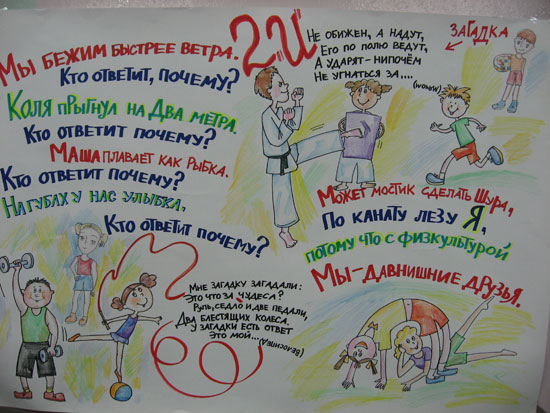 Мы бежим быстрее ветра.
Кто ответит, почему?
Коля прыгнул на два метра.
Кто ответит почему?
Маша плавает как рыбка.
Кто ответит почему?
На губах у нас улыбка,
Кто ответит почему?
2"И"
Не обижен, а надут,
Его по полю ведут,
А ударят - нипочём
Не угнаться за....
(мячом)
ЗАГАДКА
Может мостик сделать Шура,
По канату лезу Я,
потому что с физкультурой
Мы - давнишние друзья.
Мне загадку загадали:
Это что за чудеса?
Руль, седло и две педали,
Два блестящих колеса.
У загадки есть ответ
Это мой...
(велосипед)